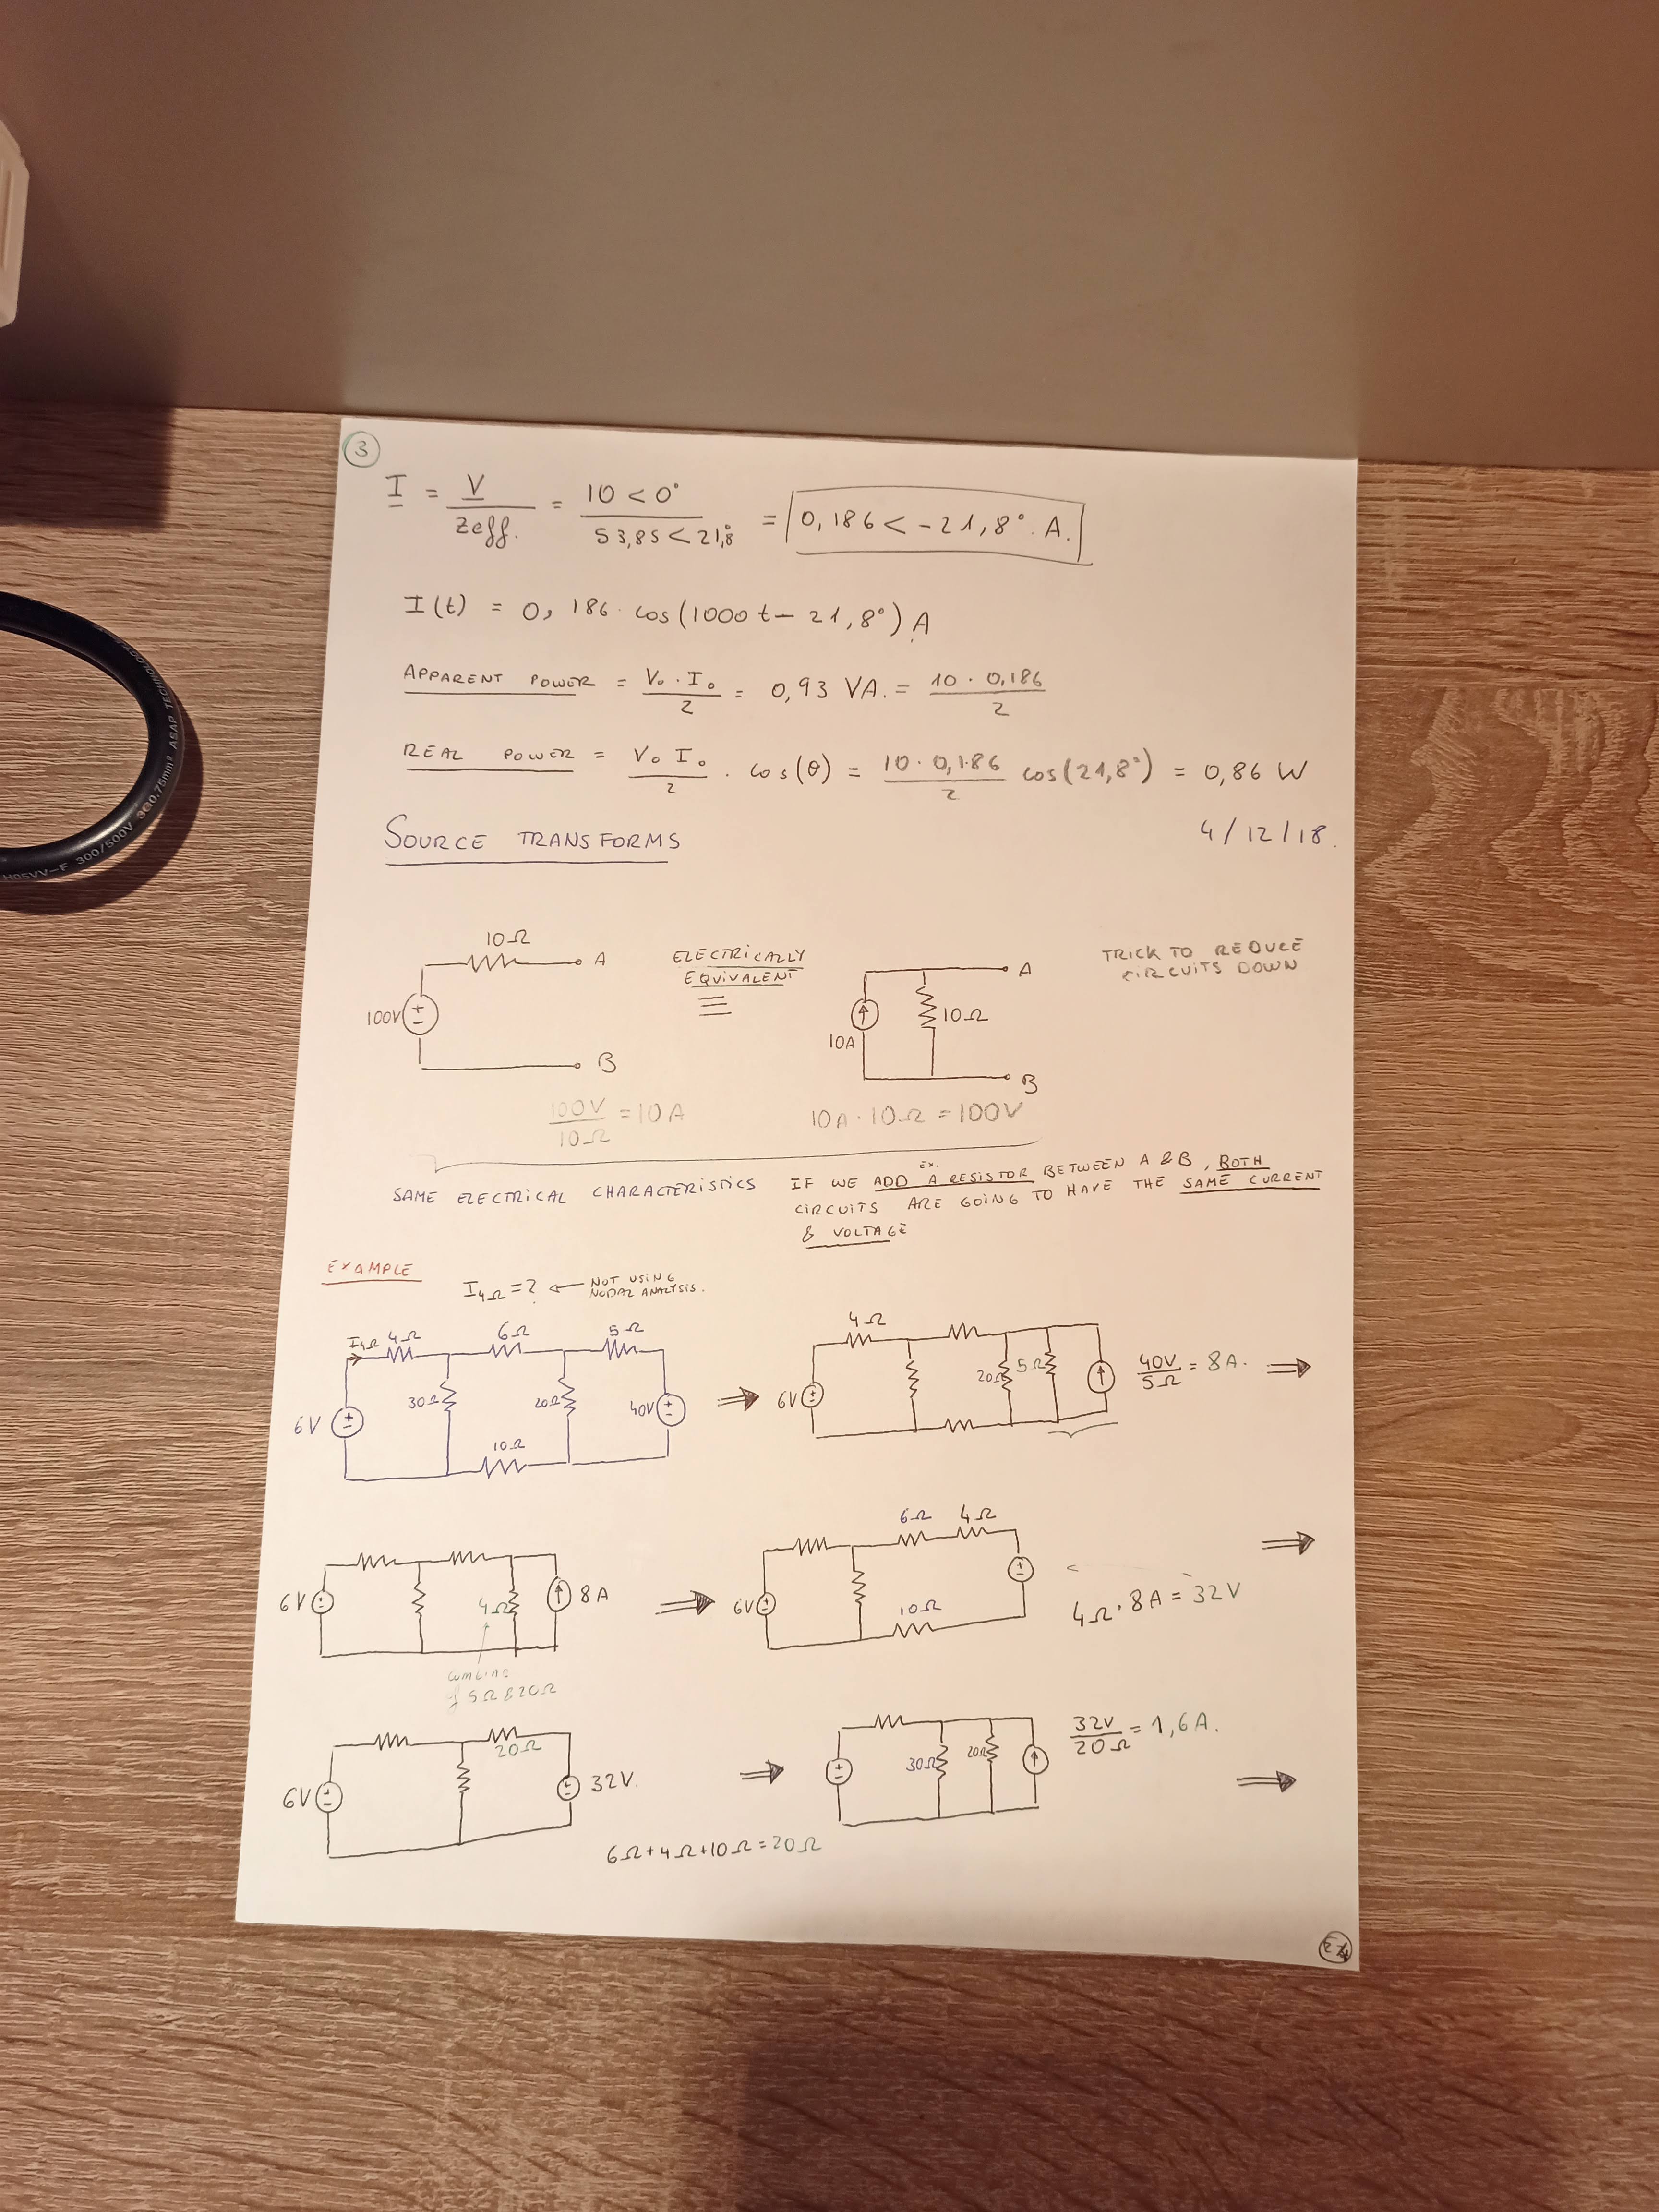 3
I = V / Zeff. = 10 < 0° / 53,85 < 21,8° = 0,186 < -21,8° A.
I(t) = 0,186 · cos(1000t - 21,8°) A
APPARENT POWER = V₀ · I₀ / 2 = 0,93 VA. = 10 · 0,186 / 2
REAL POWER = V₀ I₀ / 2 · cos(θ) = 10 · 0,186 / 2 cos(21,8°) = 0,86 W
SOURCE TRANSFORMS
4/12/18.
10Ω
A
100V
+
-
B
ELECTRICALLY
EQUIVALENT
≡
A
10A
10Ω
B
TRICK TO REDUCE
CIRCUITS DOWN
100V / 10Ω = 10A
10A · 10Ω = 100V
SAME ELECTRICAL CHARACTERISTICS
EX.
IF WE ADD A RESISTOR BETWEEN A & B, BOTH
CIRCUITS ARE GOING TO HAVE THE SAME CURRENT
& VOLTAGE
EXAMPLE
I4Ω = ? ← NOT USING
NODAL ANALYSIS.
I4Ω 4Ω 6Ω 5Ω
6V 30Ω 20Ω 40V
10Ω
⇒
4Ω
6V 20Ω 5Ω
40V / 5Ω = 8A.
⇒
6V 4Ω 8A
combine
of 5Ω & 20Ω
⇒
6Ω 4Ω
6V
10Ω
4Ω · 8A = 32V
⇒
20Ω
6V 32V.
6Ω + 4Ω + 10Ω = 20Ω
⇒
30Ω 20Ω
32V / 20Ω = 1,6A.
⇒
3G0.75mm² ASAP TECHRON
H05VV-F 300/500V